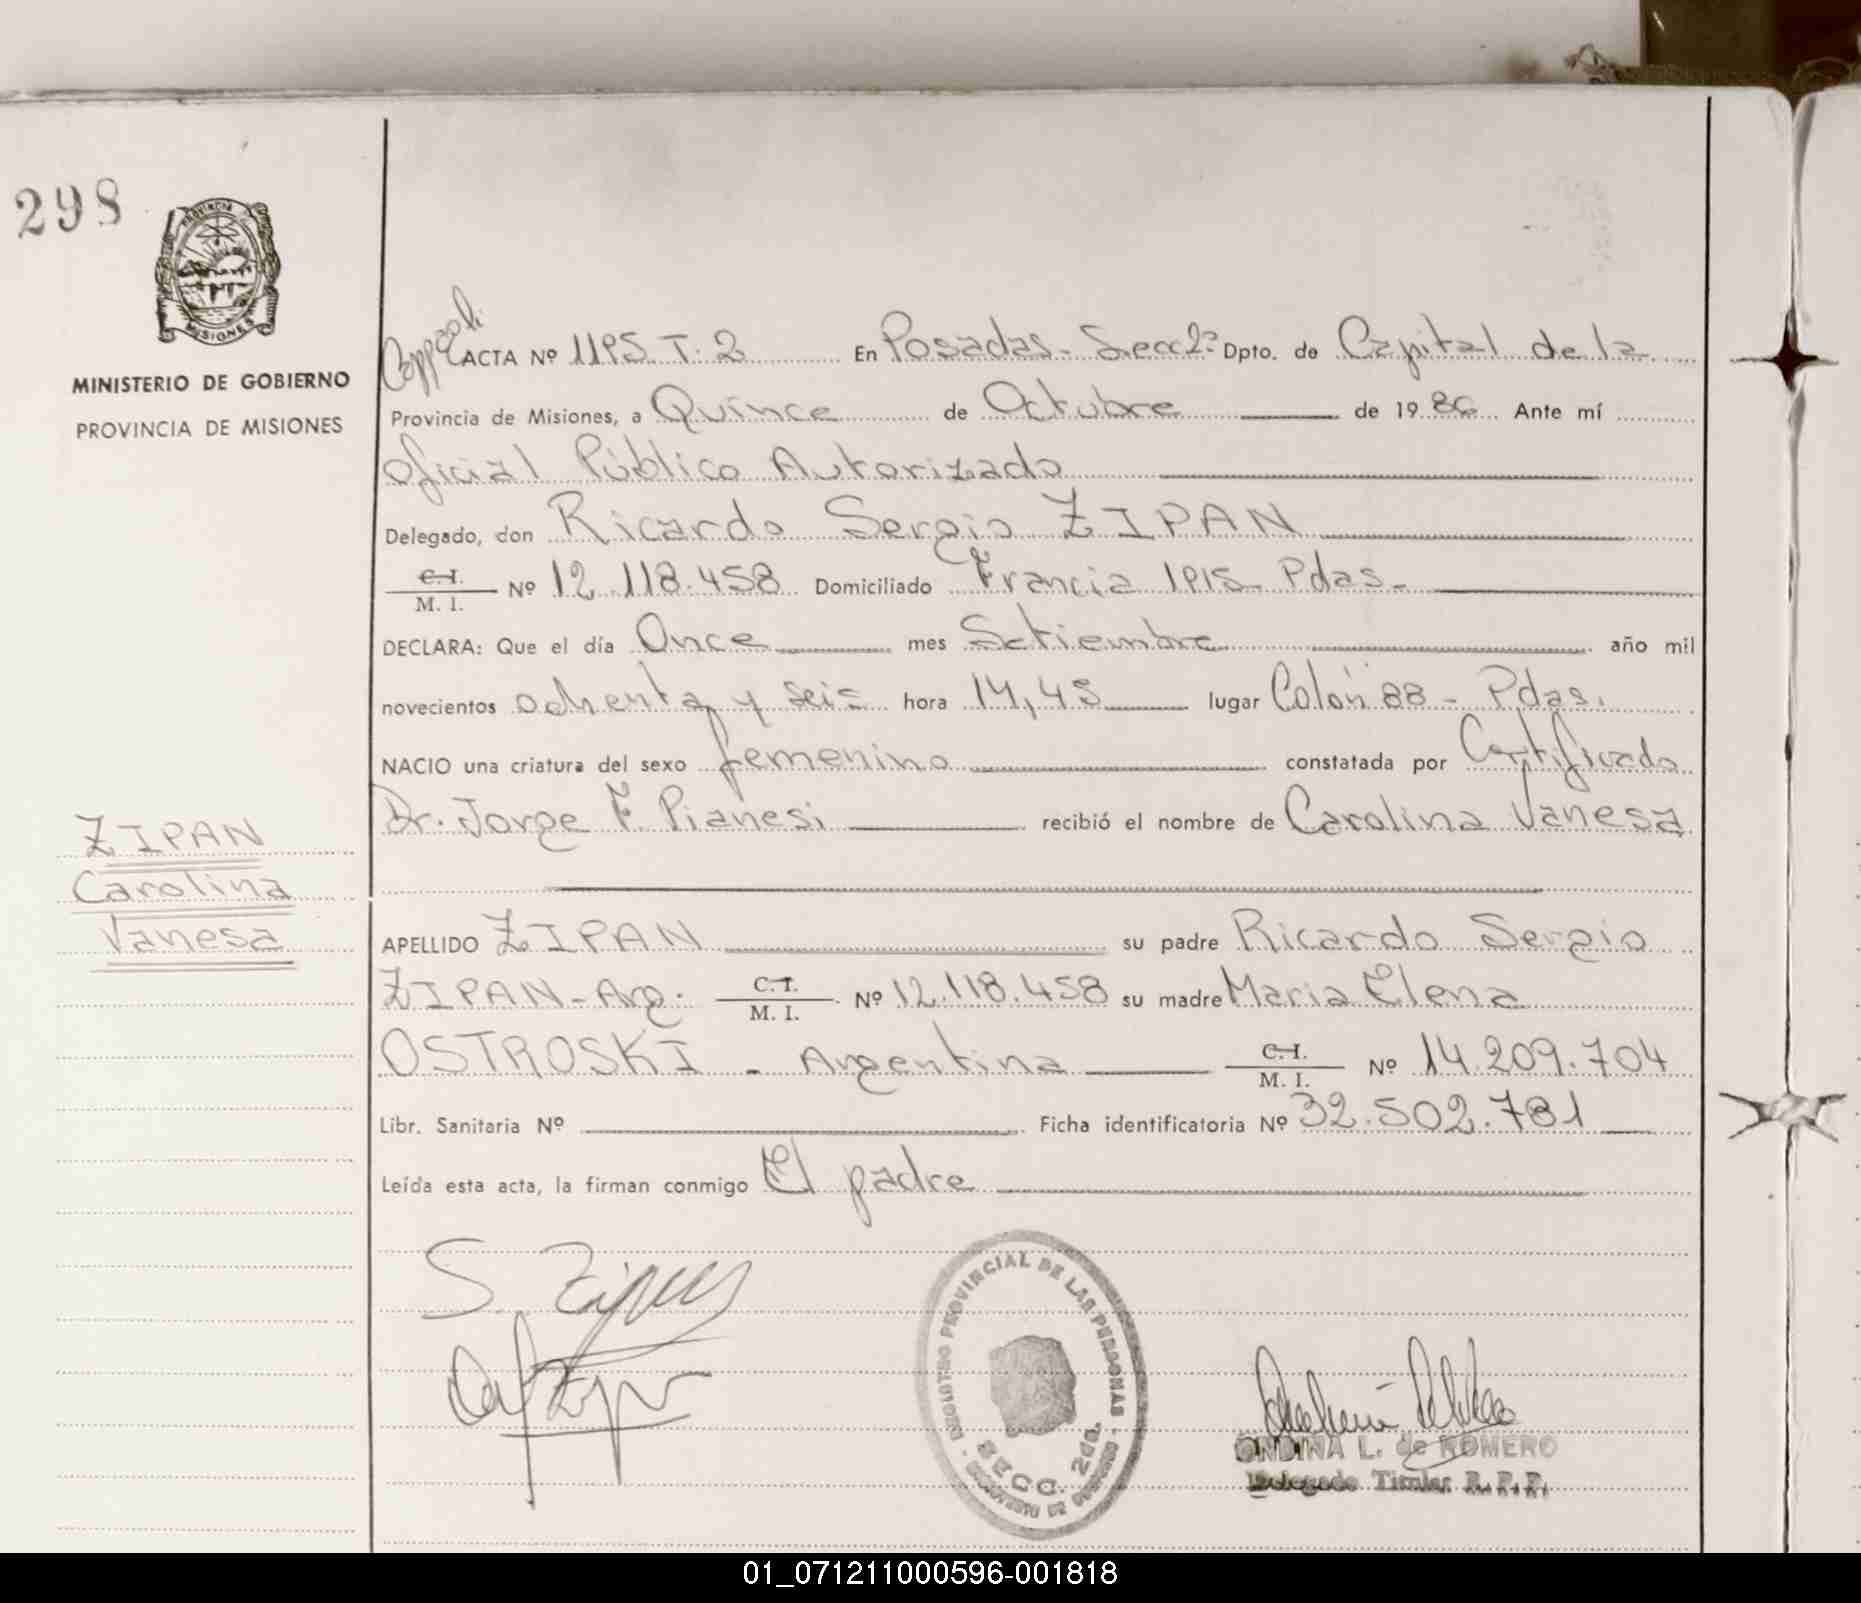 298
PROVINCIA
MISIONES
MINISTERIO DE GOBIERNO
PROVINCIA DE MISIONES
ACTA Nº 1195 T. 2 En Posadas - Secc 2ª Dpto. de Capital de la
Provincia de Misiones, a Quince de Octubre de 19 86 Ante mí
Oficial Público Autorizado
Delegado, don Ricardo Sergio ZIPAN
C. I.
M. I. Nº 12.118.458 Domiciliado Francia 1915 - Pdas -
DECLARA: Que el día Once mes Setiembre año mil
novecientos ochenta y seis hora 14,45 lugar Colón 88 - Pdas.
NACIO una criatura del sexo femenino constatada por Certificado
Dr. Jorge F. Pianesi recibió el nombre de Carolina Vanesa
ZIPAN
Carolina
Vanesa
APELLIDO ZIPAN su padre Ricardo Sergio
ZIPAN - Arg. C. I.
M. I. Nº 12.118.458 su madre Maria Elena
OSTROSKI - Argentina C. I.
M. I. Nº 14.209.704
Libr. Sanitaria Nº Ficha identificatoria Nº 32.502.781
Leída esta acta, la firman conmigo El padre
REGISTRO PROVINCIAL DE LAS PERSONAS
SECC. 2da.
ONDINA L. de ROMERO
Delegado Titular R. P. P.
01_071211000596-001818